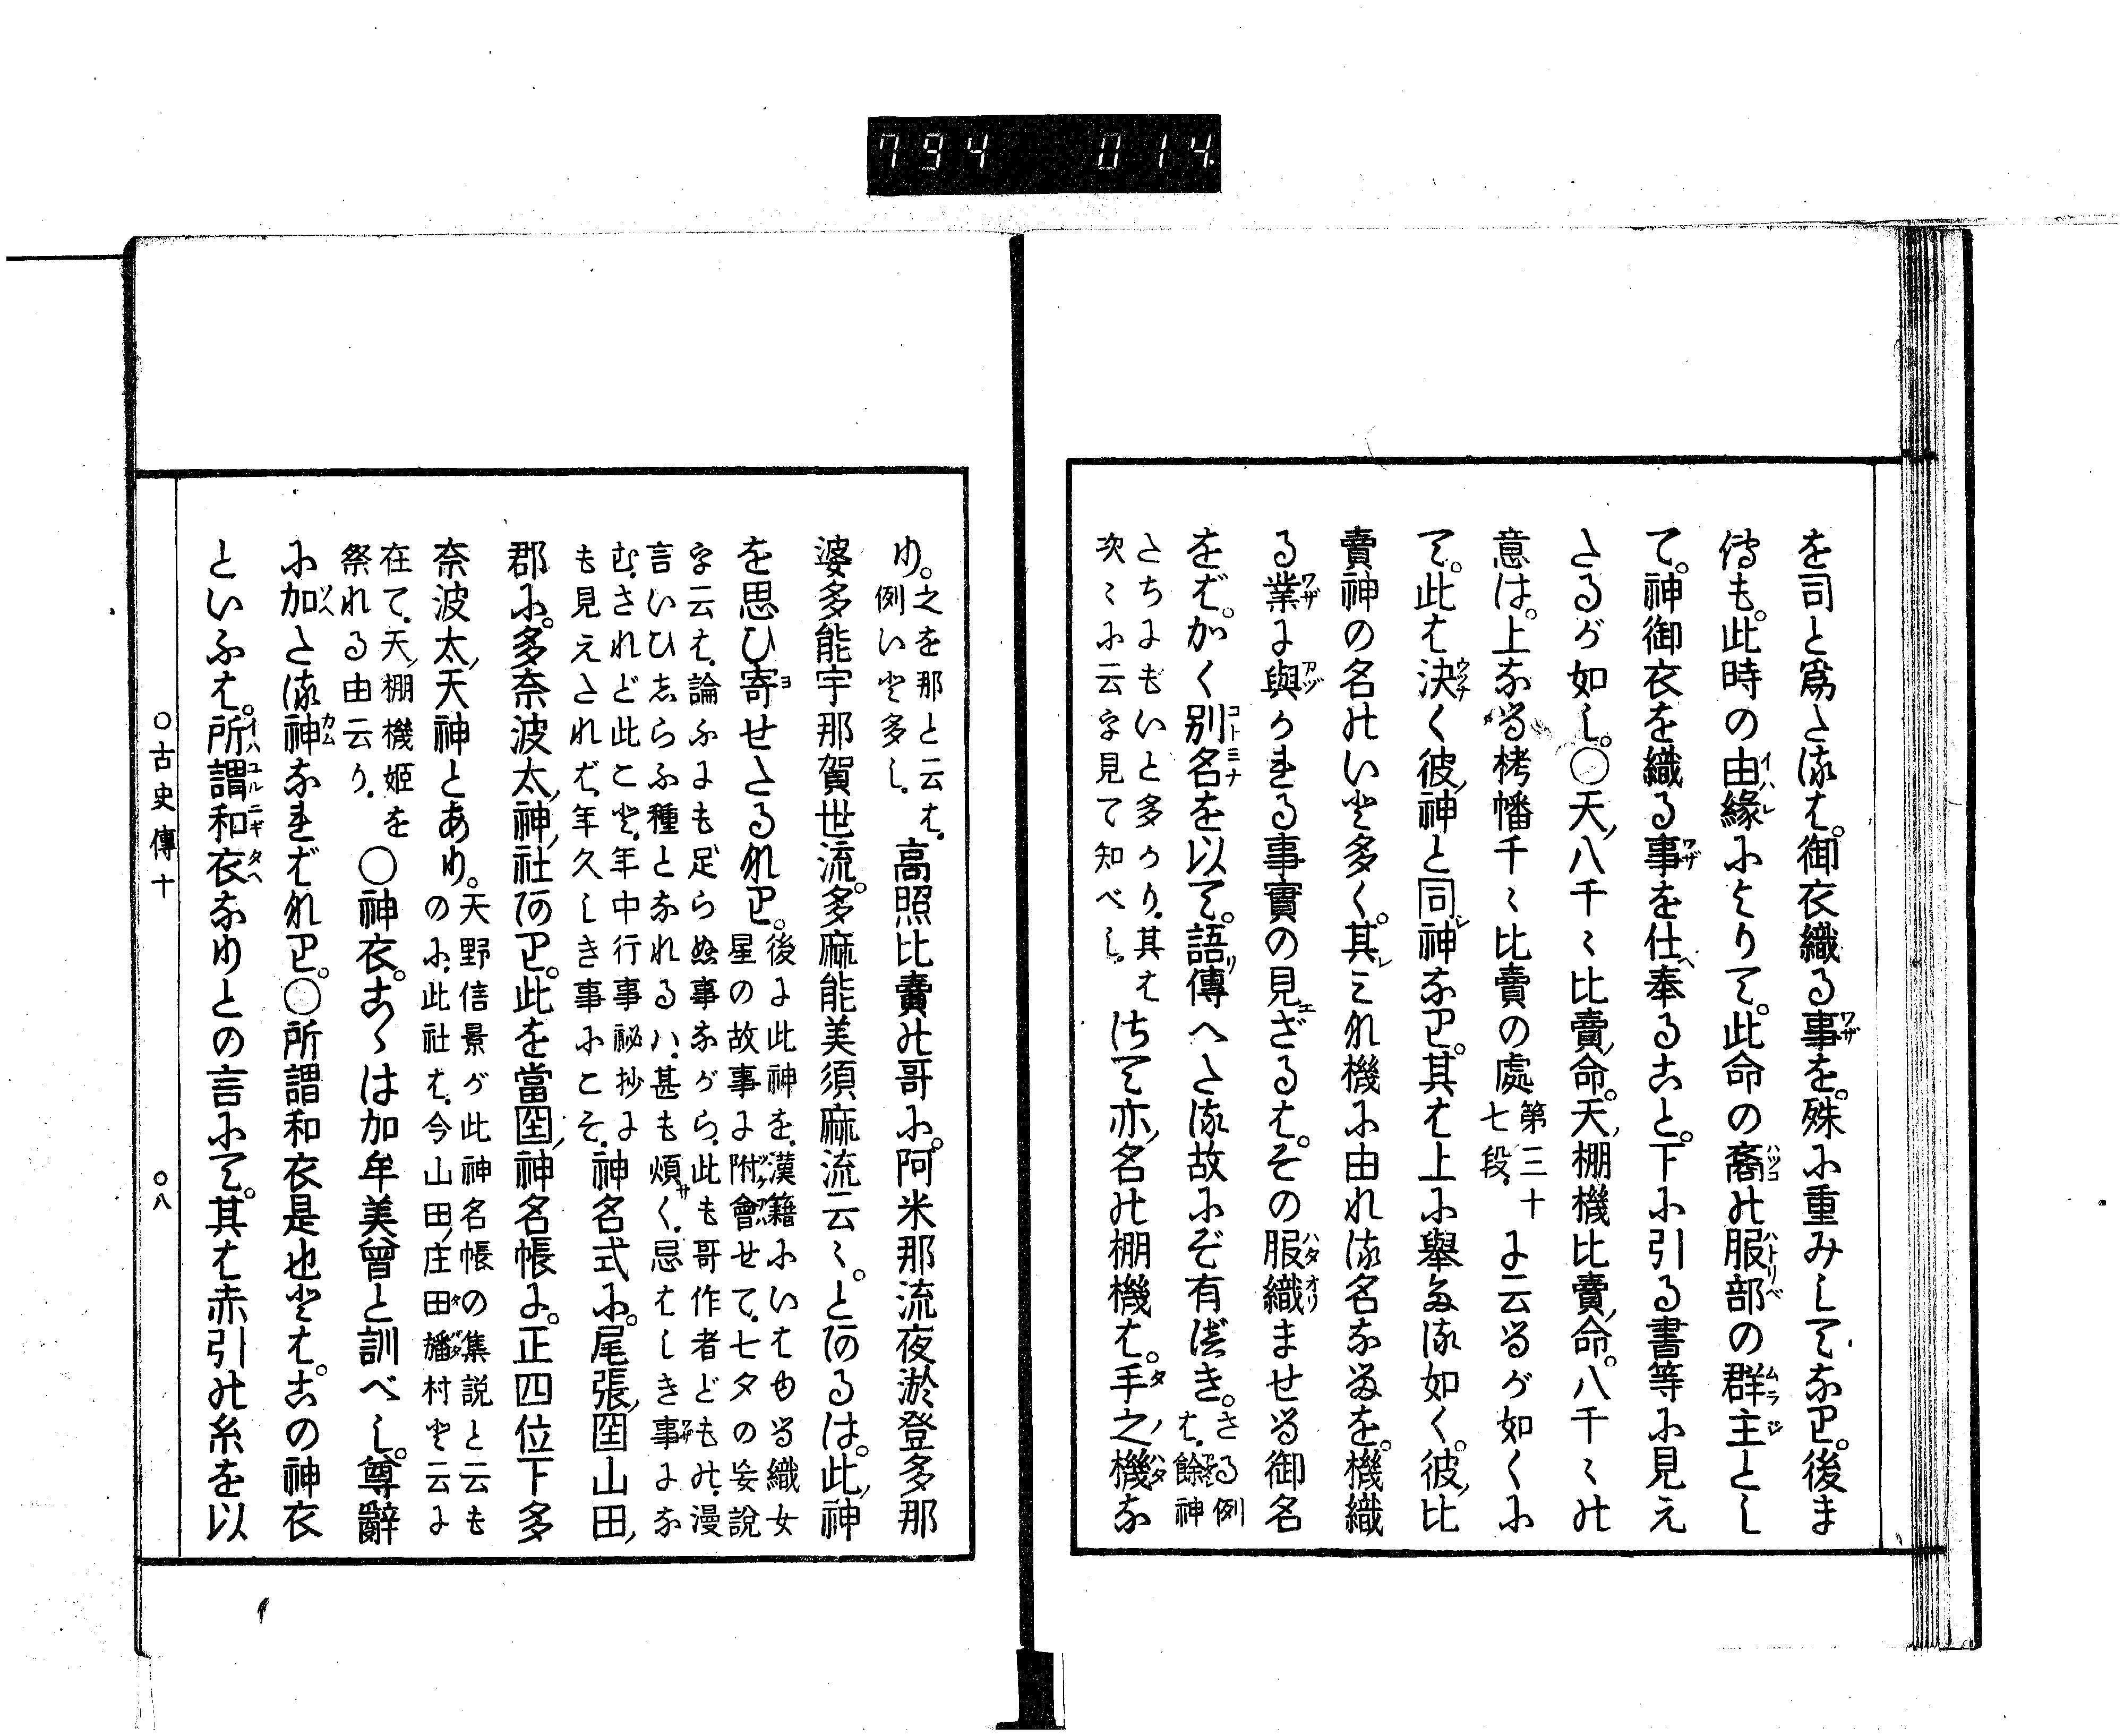 794 014
を司と爲たるは。御衣織る事を。殊に重みしてなり。後ま
傳も。此時の由緣によりて。此命の裔の服部の群主とし
て。神御衣を織る事を仕奉ること。下に引る書等に見え
たるが如し。○天八千〻比賣命。天棚機比賣命。八千〻の
意は。上なる栲幡千〻比賣の處第三十七段。に云るが如くに
て。此は決く彼神と同神なり。其は上に擧たる如く。彼比
賣神の名のいと多く。其みな機に由れる名なるを。機織
る業に與かれる事實の見ざるは。その服織ませる御名
をば。かく別名を以て。語傳へたる故にぞ有べき。さる例は。餘神
たちにもいと多かり。其は次〻に云を見て知べし。さて亦名の棚機は。手之機な
り。之を那と云は。例いと多し。高照比賣の哥に。阿米那流夜淤登多那
婆多能宇那賀世流。多麻能美須麻流云〻。とあるは。此神
を思ひ寄せたるなり。後に此神を。漢籍にいはゆる織女星の故事に附會せて。七夕の妄說
を云は。論ふにも足らぬ事ながら。此も哥作者どもの。漫言いひしらふ種となれるハ。甚も煩く。忌はしき事にな
む。されど此こと。年中行事祕抄にも見えたれば。年久しき事にこそ。神名式に。尾張国山田
郡に。多奈波太神社あり。此を當国神名帳に。正四位下多
奈波太天神とあり。天野信景が此神名帳の集說と云ものに。此社は。今山田庄田旛村と云に
在て。天棚機姬を祭れる由云り。○神衣。こゝは加牟美曾と訓べし。尊辭
に加たる神なればなり。○所謂和衣是也とは。この神衣
といふは。所謂和衣なりとの言にて。其は赤引の糸を以
○古史傳十　○八